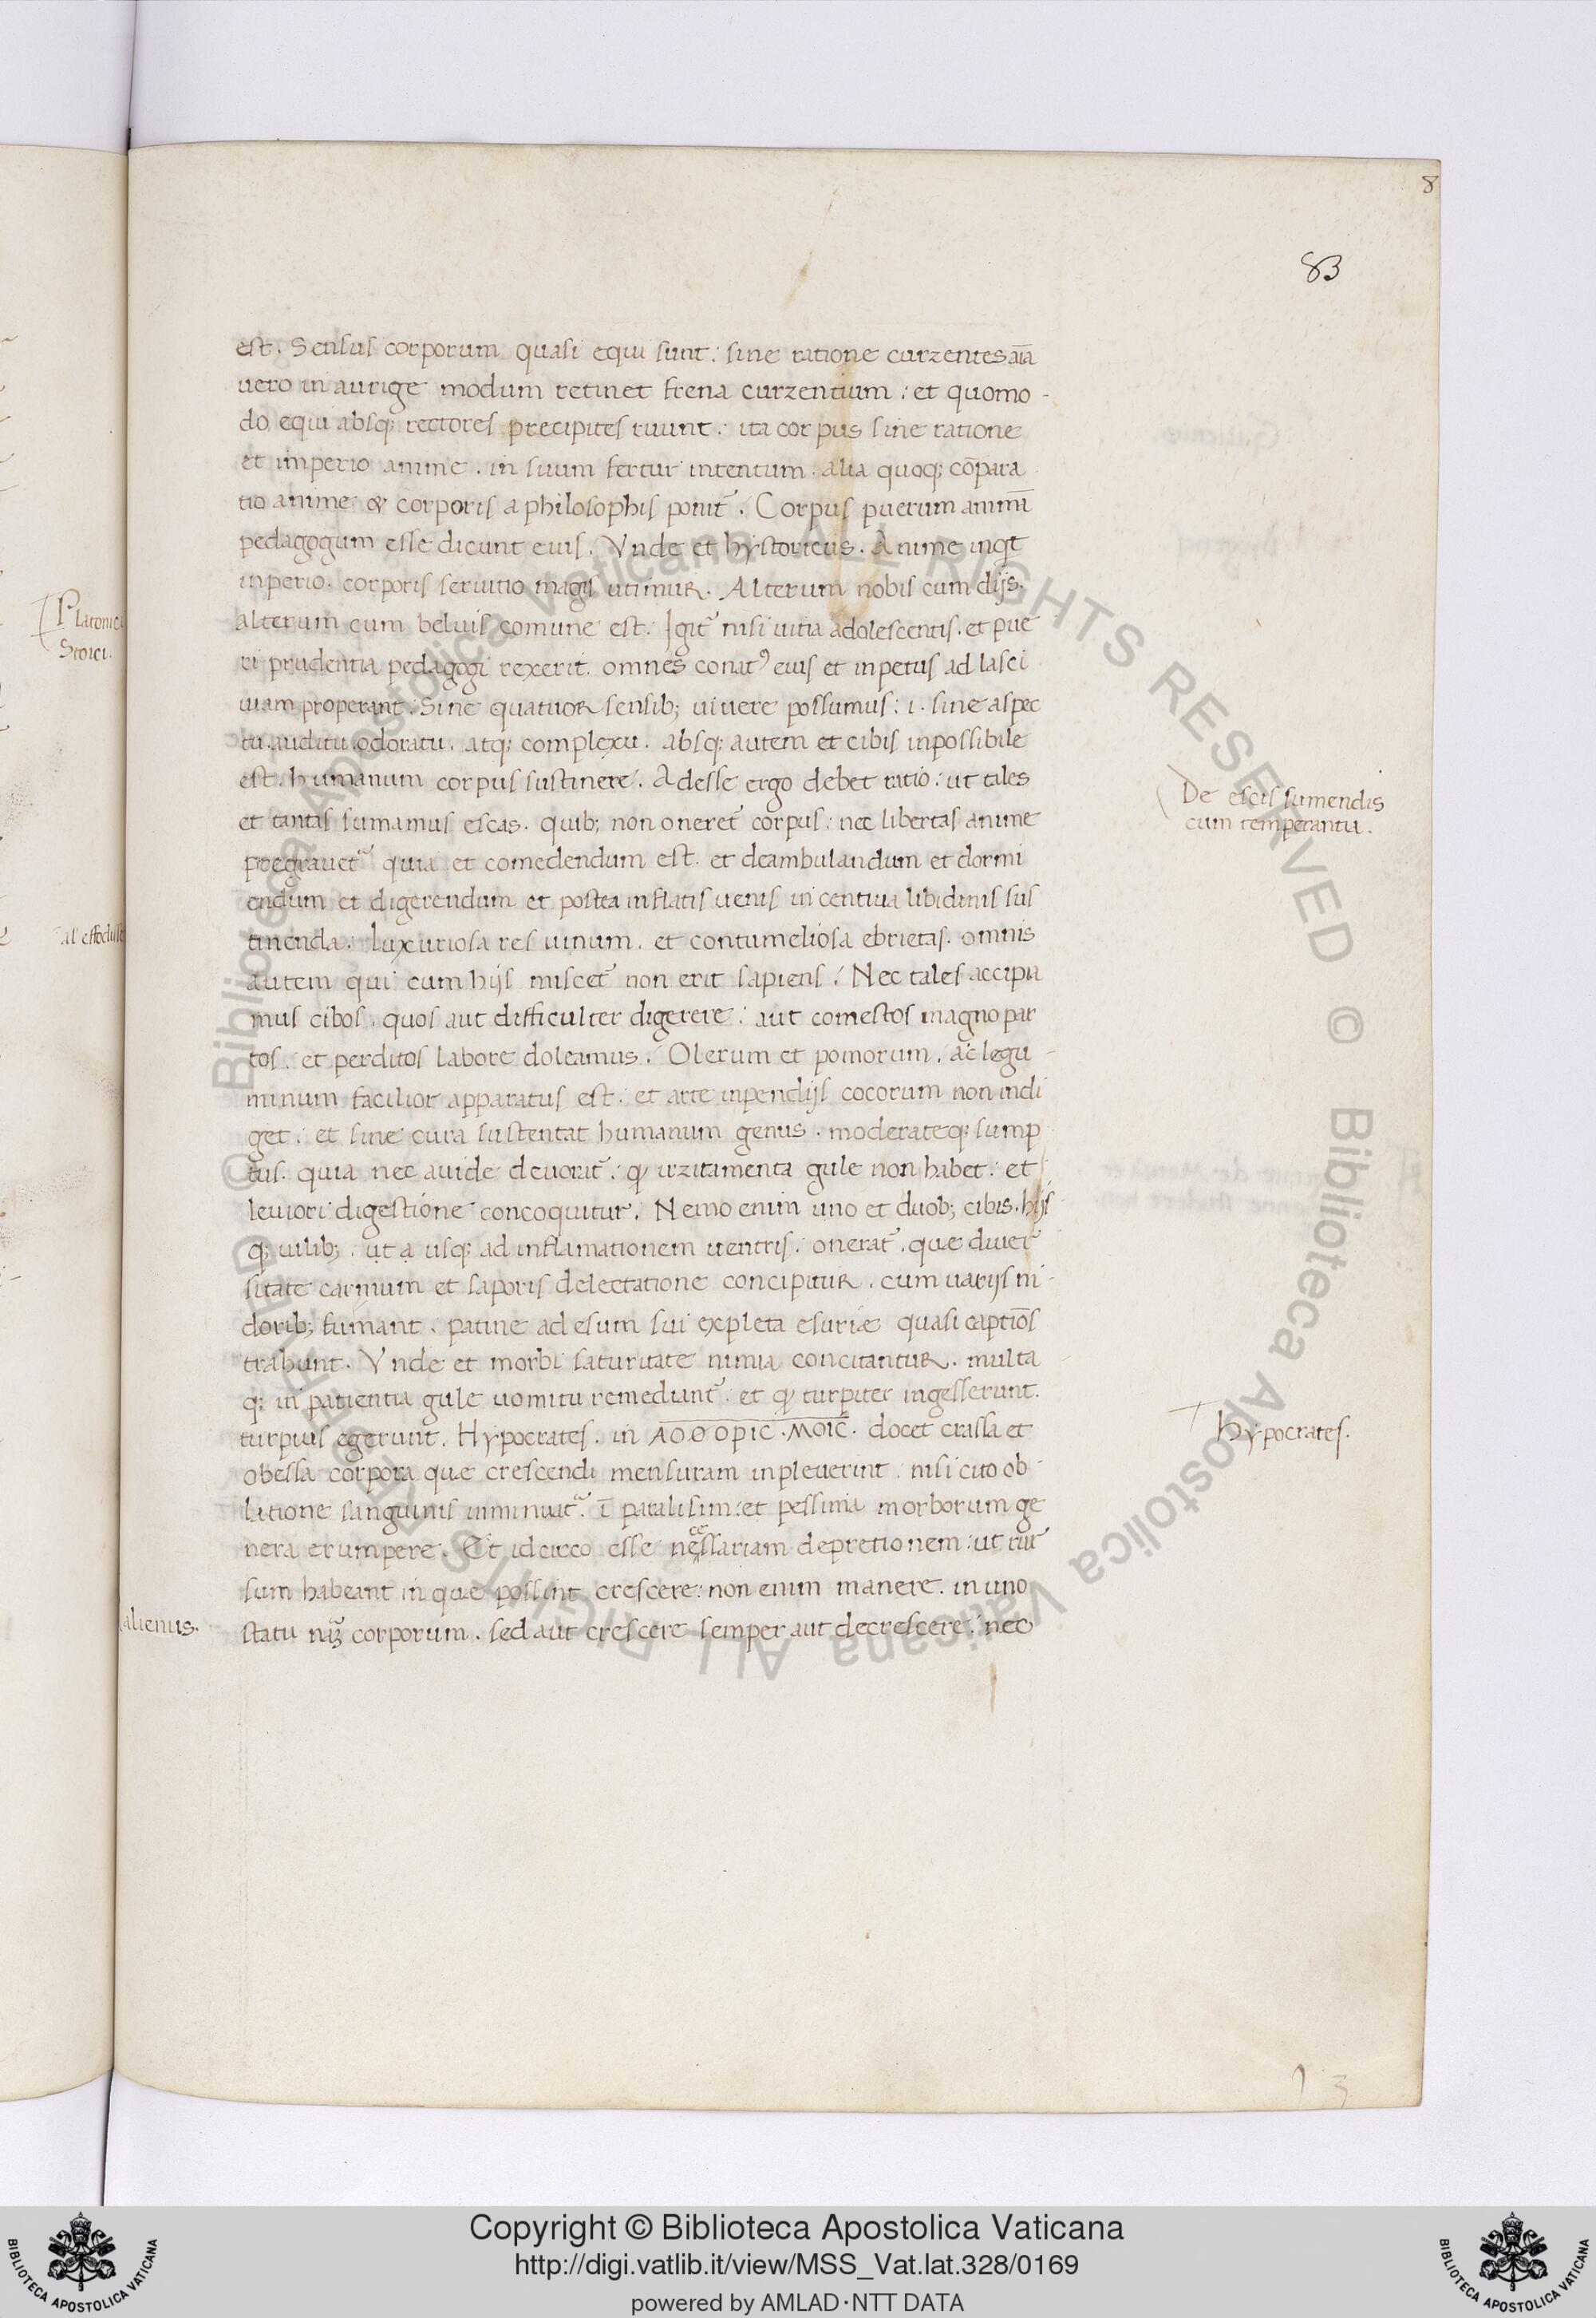 8
83
est. Sensus corporum quasi equi sunt: sine ratione currentes aīa
uero in aurige modum retinet frena currentium: et quomo-
do equi absq; rectores precipites ruunt: ita corpus sine ratione
et imperio anime. in suum fertur intentum. alia quoq; cōpara
tio anime & corporis a philosophis ponit᷑. Corpus puerum animā
pedagogum esse dicunt eius. Vnde et hystoricus. Anime inqͥt
inperio. corporis seruitio magis utimur. Alterum nobis cum dijs.
alterum cum beluis comune est. Igit᷑ nisi uitia adolescentis. et pue
ri prudentia pedagogi rexerit. omnes conatꝰ eius et inpetus ad lasci
uiam properant. Sine quatuor sensib; uiuere possumus: i. sine aspec
tu. auditu. odoratu. atq; complexu. absq; autem et cibis inpossibile
est. humanum corpus sustinere. Adesse ergo debet ratio: ut tales
et tantas sumamus escas. quib; non oneret᷑ corpus: nec libertas anime
pregrauet᷑ quia et comedendum est. et deambulandum et dormi
endum et digerendum et postea inflatis uenis incentiua libidinis sus
tinenda. Luxuriosa res uinum. et contumeliosa ebrietas. omnis
autem qui cum hijs miscet᷑ non erit sapiens. Nec tales accipia
mus cibos. quos aut difficulter digerere: aut comestos magno par
tos. et perditos labore doleamus. Olerum et pomorum. ac legu-
minum facilior apparatus est: et arte inpendijs cocorum non indi
get: et sine cura sustentat humanum genus. moderateq; sump
tus. quia nec auide deuorat᷑: ꝙ irritamenta gule non habet: et
leuiori digestione concoquitur. Nemo enim uno et duob; cibis. hijs
q; uilib;. ut a usq; ad inflamationem uentris. onerat᷑. quae diuer
sitate carnium et saporis delectatione concipitur. cum uarijs ni-
dorib; fumant. patine ad esum sui expleta esuriae quasi captiōs
trahunt. Vnde et morbi saturitate nimia concitantur. multa
q; in patientia gule uomitu remediunt᷑. et ꝙ turpiter ingesserunt.
turpius egerunt. Hypocrates. in ΑΟΘΟΡΙC. ΜΟΙC. docet crassa et
obessa corpora quae crescendi mensuram inpleuerint. nisi cito ob-
latione sanguinis inminuat᷑. ī paralisim: et pessima morborum ge
nera erumpere. Et idcirco esse necessariam depretionem: ut rur
sum habeant in quae possint crescere: non enim manere. in uno
statu corporum. sed aut crescere semper aut decrescere: nec
De escis sumendis
cum temperantia.
Hypocrates.
Platonici
Stoici.
alienus.
13
Copyright © Biblioteca Apostolica Vaticana
http://digi.vatlib.it/view/MSS_Vat.lat.328/0169
powered by AMLAD·NTT DATA
BIBLIOTECA APOSTOLICA VATICANA
BIBLIOTECA APOSTOLICA VATICANA